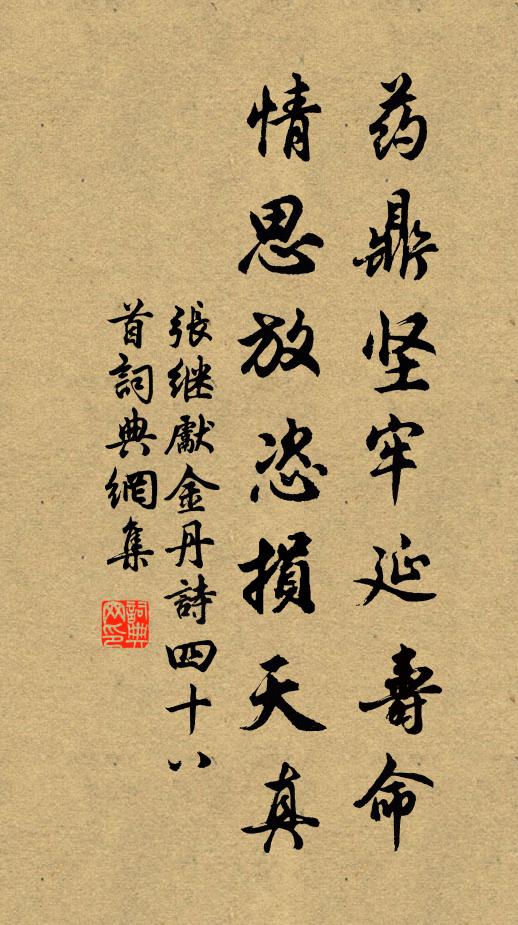 药鼎坚牢延壽命
情思放恣損天真
張继獻金丹詩四十八
首詞典網集
詞典
网印